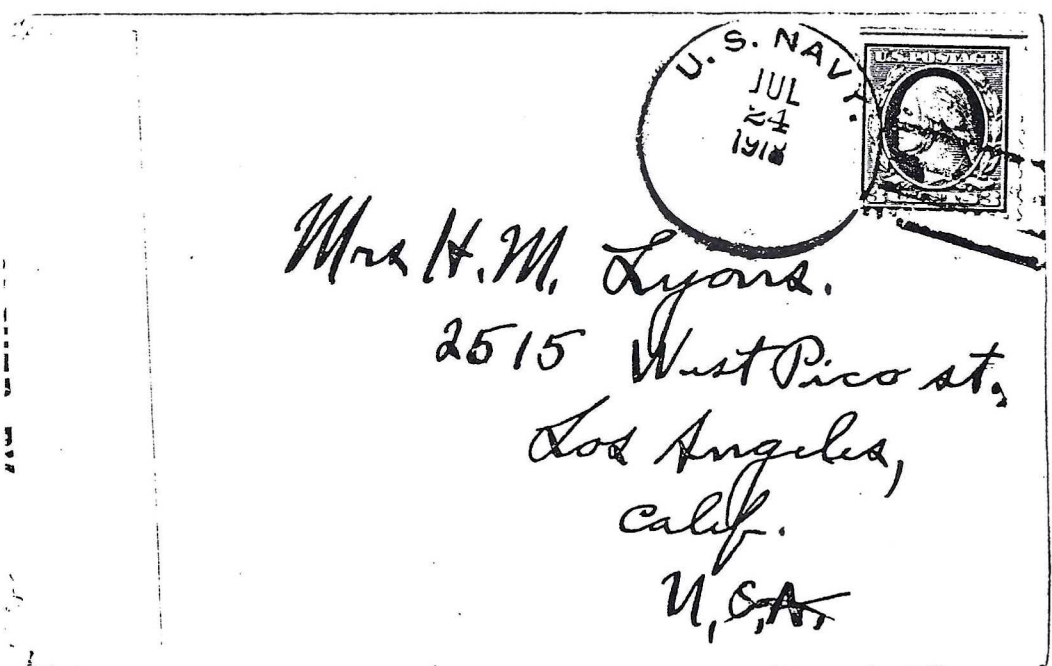 U. S. NAVY.
JUL
24
1918
U.S. POSTAGE
Mrs H. M. Lyons.
2515 West Pico st.,
Los Angeles,
Calif.
U, S, A.